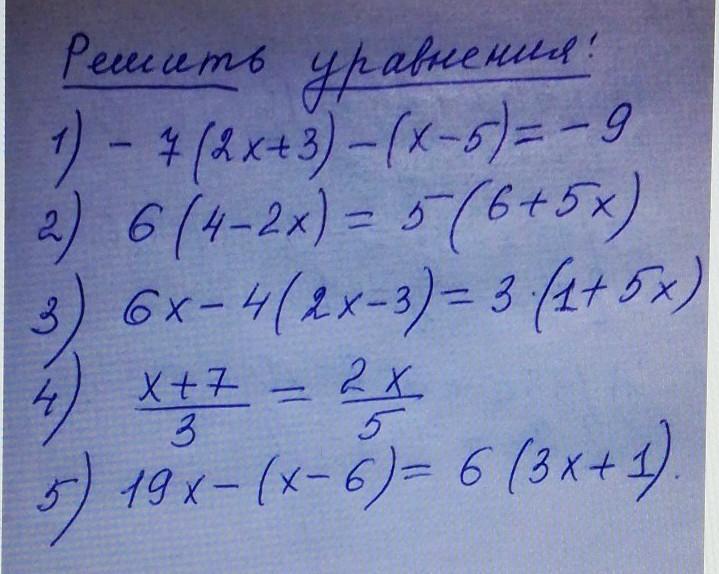 Решить уравнения!
1) - 7(2x+3)-(x-5)=-9
2) 6(4-2x)=5(6+5x)
3) 6x-4(2x-3)=3·(1+5x)
4) \frac{x+7}{3} = \frac{2x}{5}
5) 19x-(x-6)=6(3x+1).